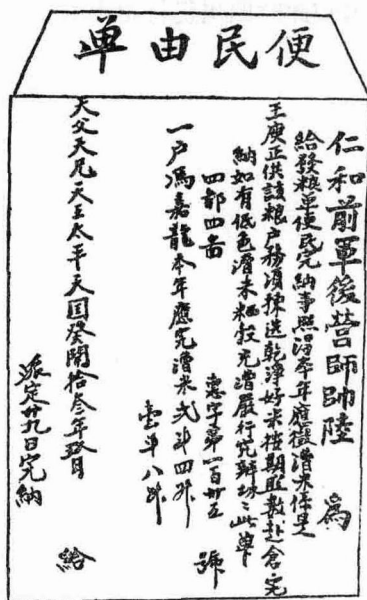 便民由单
仁和前軍後营師帥陸 為
給發粮單便民完納事照得本年應徵漕米係是
王庚正供該粮户務須揀选乾淨好米按期照数赴倉完
納如有低色潮米糙穀充漕嚴行究辦切切此单
四都四啚 字第一百廿五 號
一户馮嘉龍本年應完漕米弍斗四升
斗八升
天父天兄天王太平天囯癸開拾叁年 月 給
派定廿九日完納